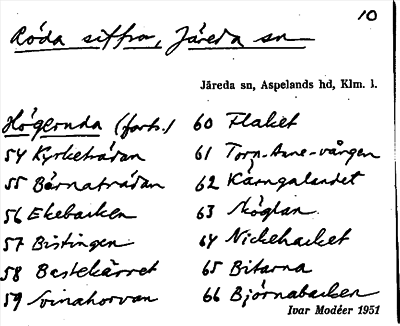 10
Röda siffror, Järeda sn
Järeda sn, Aspelands hd, Klm. l.
Höglunda (forts.)
54 Kyrketrädan
55 Bärnaträdan
56 Ekebacken
57 Bistingen
58 Bastekärret
59 Svinahorvan
60 Flaket
61 Torp-Anne-vången
62 Kärngalandet
63 Sköglan
64 Nickehacket
65 Bitarna
66 Björnabacken
Ivar Modéer 1951